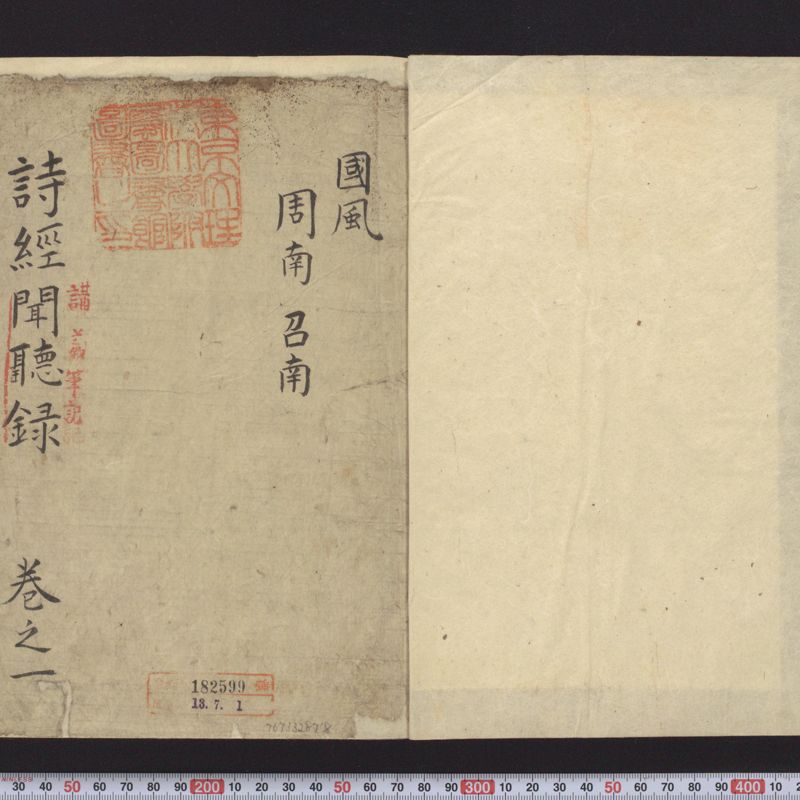 國風
周南 召南
詩經聞聽録 卷之一
講義筆記
182599
13.7.1
30 40 50 60 70 80 90 200 10 20 30 40 50 60 70 80 90 300 10 20 30 40 50 60 70 80 90 400 10 2